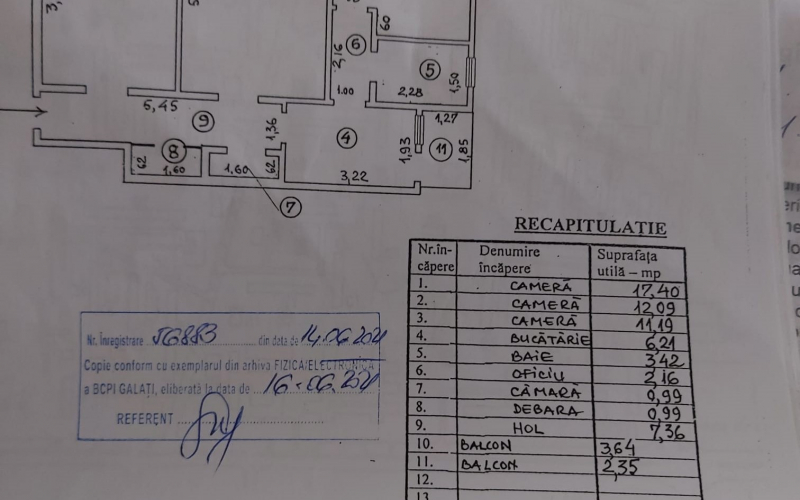 6
2,16
60
5
1,50
1.00
2,28
5,45
9
1,36
4
1,27
1,93
11
1,85
8
62
1,60
1.60
62
3,22
7
RECAPITULAȚIE
Nr.în-căpere Denumire încăpere Suprafața utilă – mp
1. CAMERĂ 17,40
2. CAMERĂ 12,09
3. CAMERĂ 11,19
4. BUCĂTĂRIE 6,21
5. BAIE 3,42
6. OFICIU 2,16
7. CĂMARĂ 0,99
8. DEBARA 0,99
9. HOL 7,36
10. BALCON 3,64
11. BALCON 2,35
12.
13.
Nr. Înregistrare 56883 din data de 14.06.2021
Copie conform cu exemplarul din arhiva FIZICA/ELECTRONICA
a BCPI GALAȚI, eliberată la data de 16-06.2021
REFERENT